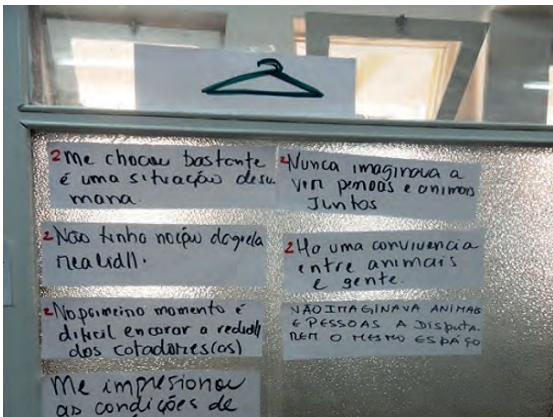 2 Me chocou bastante
é uma situação desu
mana.
2 Não tinha noção daquela
realidd.
2 No primeiro momento é
difícil encarar a realidd
dos catadores(as)
Me impresionou
as condições de
2 Nunca imaginava a
ver pessoas e animais
Juntos
2 Ha uma convivencia
entre animais
e gente.
NÃO IMAGINAVA ANIMAIS
E PESSOAS A DISPUTA
REM O MESMO ESPAÇO